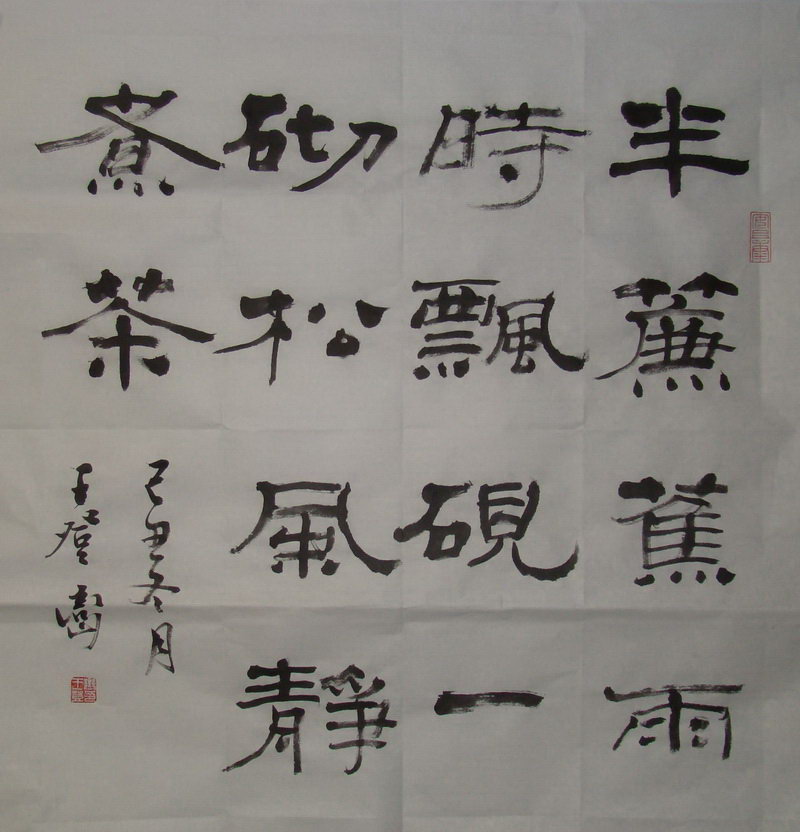 半簾蕉雨
時飄硯一
砌松風靜
煮茶
己丑冬月
王登